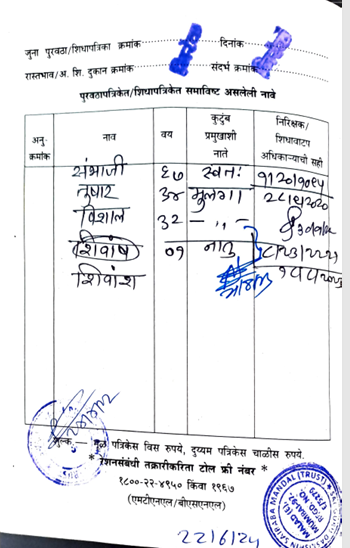 जुना पुरवठा/शिधापत्रिका क्रमांक दिनांक
रास्तभाव/अ. शि. दुकान क्रमांक संदर्भ क्रमांक
पुरवठापत्रिकेत/शिधापत्रिकेत समाविष्ट असलेली नावे
अनु-क्रमांक नाव वय कुटुंब प्रमुखाशी नाते निरिक्षक/शिधावाटप अधिकाऱ्याची सही
संभाजी ६७ स्वतः
तुषार ३४ मुलगा
विशाल ३२ -,,-
शिवांष ०१ नातु
शिवांश
शुल्क.— मूळ पत्रिकेस विस रुपये, दुय्यम पत्रिकेस चाळीस रुपये.
* रेशनसंबंधी तक्रारीकरिता टोल फ्री नंबर *
१८००-२२-४९५० किंवा १९६७
(एमटीएनएल/बीएसएनएल)
22/6/24